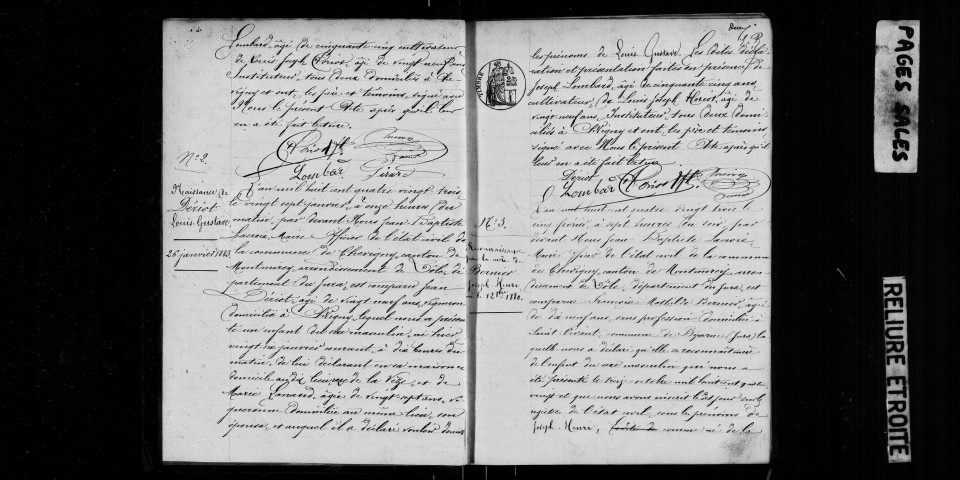 Lombard, âgé de cinquante cinq cultivateur
de Louis Joseph Horiot, âgé de vingt neuf ans
Instituteur, tous deux domiciliés à Che-
vigny et ont, les père et témoins, signé avec
Nous le présent Acte, après qu'il leur
en a été fait lecture.
Horiot
Lombar
Dériot
N° 2.
Naissance de
Dériot
Louis Gustave
26 janvier 1883
L'an mil huit cent quatre vingt trois
le vingt sept janvier, à onze heures du
matin, par devant Nous Jean Baptiste
Lacroix, Maire, Officier de l'état civil de
la commune de Chevigny, canton de
Montmirey, arrondissement de Dôle, dé-
partement du Jura, est comparu Jean
Dériot, âgé de vingt neuf ans, vigneron
domicilié à Chevigny, lequel nous a présen-
té un enfant du sexe masculin, né hier
vingt six janvier courant, à dix heures du
matin, de lui déclarant en sa maison
domicile au dix lieu de la Vèze, et de
Marie Lanard, âgée de vingt sept ans, vi-
gneronne domiciliée au même lieu, son
épouse, et auquel il a déclaré vouloir donner
les prénoms de Louis Gustave. Les dites décla-
ration et présentation faites en présence de
Joseph Lombard, âgé de cinquante cinq ans,
cultivateur, de Louis Joseph Horiot, âgé de
vingt neuf ans, Instituteur, tous deux domi-
ciliés à Chevigny et ont, les père et témoins
signé avec Nous le présent Acte après qu'il
leur en a été fait lecture
Dériot
Lombar Horiot
TIMBRE
N° 3.
Reconnaissance
par la mère de
Bernier
Joseph Henri
L'an mil huit cent quatre vingt trois le
cinq février, à sept heures du soir, par
devant Nous Jean Baptiste Lacroix
Maire, Officier de l'état civil de la commune
de Chevigny, canton de Montmirey, arron-
dissement de Dôle, département du Jura, est
comparue Françoise Mathilde Bernier, âgée
de dix neuf ans, sans profession domiciliée à
Saint Vivant, commune de Byarne (Jura) la-
quelle nous a déclaré qu'elle a reconnaissance
de l'enfant du sexe masculin que nous a
été présenté le treize octobre mil huit cent quatre
vingt et que nous avons inscrit le dit jour sur le
registre de l'état civil, sous les prénoms de
Joseph Henri, comme né de la
PAGES SALES
RELIURE ETROITE